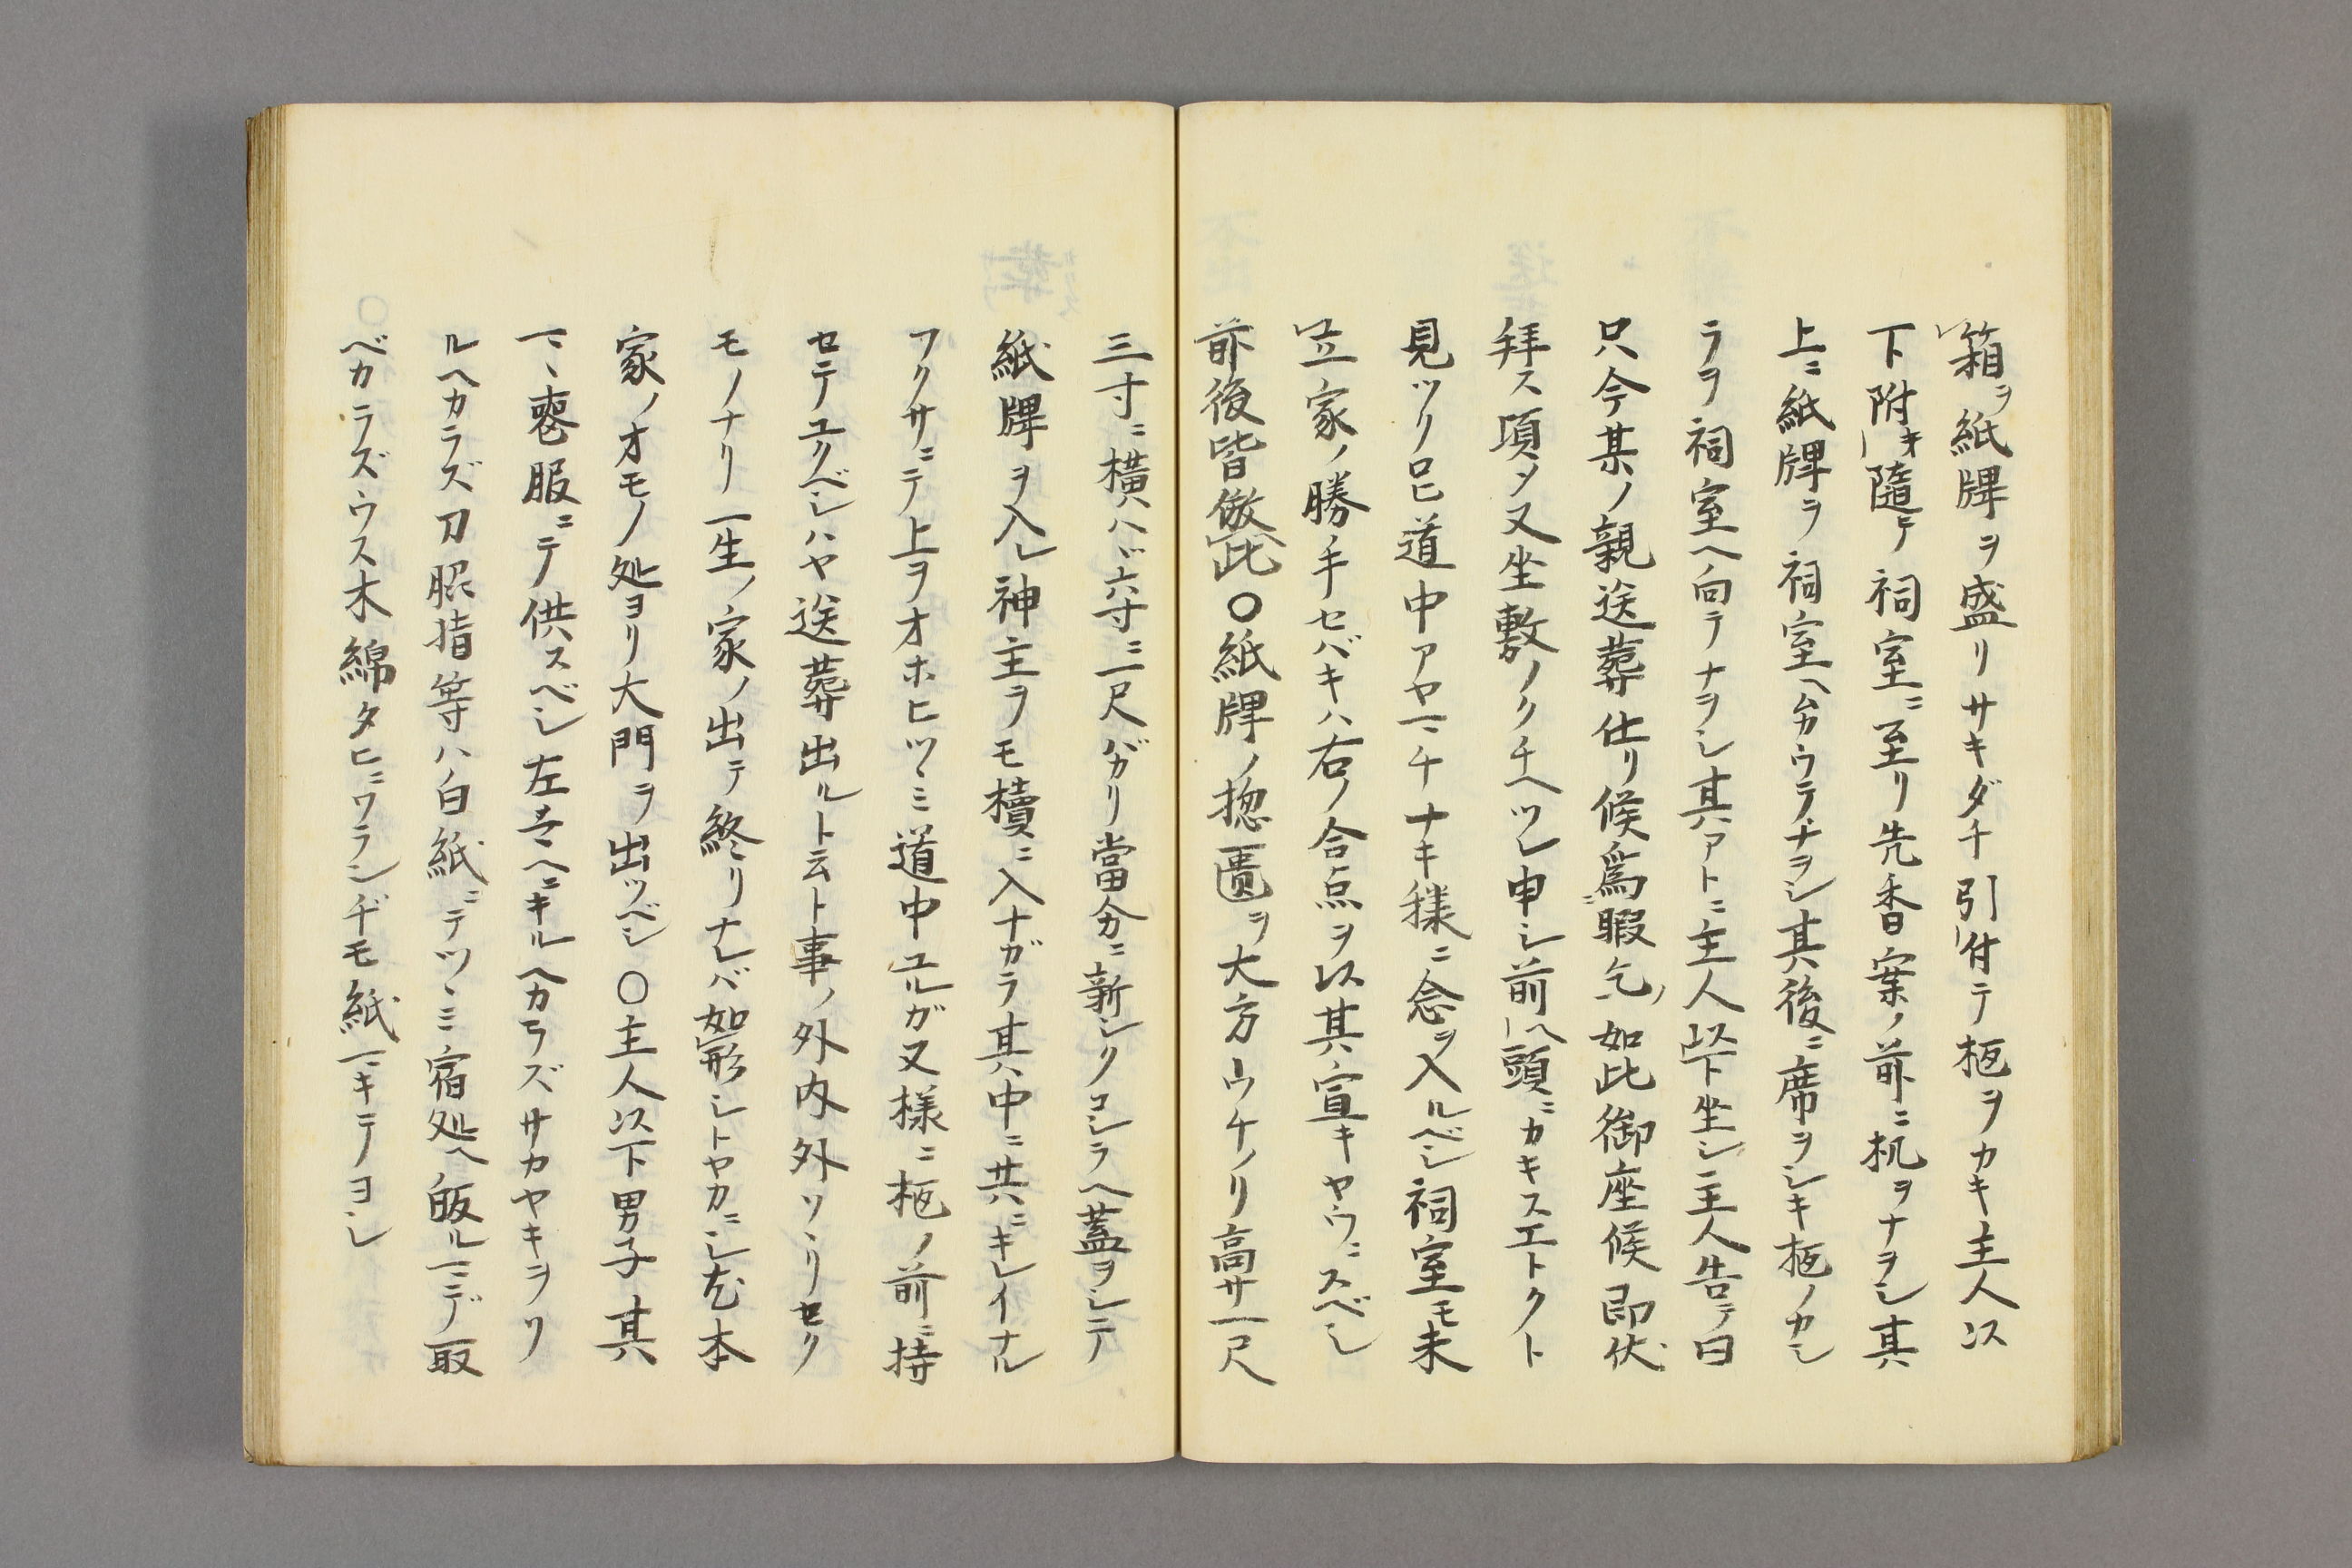 箱ヲ紙牌ヲ盛リサキダチ引付テ柩ヲカキ主人以
下附キ随テ祠室ニ至リ先香案ノ前ニ机ヲナヲシ其
上ニ紙牌ヲ祠室ヘムカウテナヲシ其後ニ席ヲシキ柩ノカシ
ラヲ祠室ヘ向テナヲシ其アトニ主人以下坐シ主人告テ曰
只今某ノ親送葬仕リ候為暇乞ノ如此御座候即伏
拜ス項メ又坐敷ノクチヘツレ申シ前ヘ頭ニカキスエトクト
見ツクロヒ道中アヤマチナキ様ニ念ヲ入ルベシ祠室モ未
立家ノ勝手セバキハ右ノ合点ヲ以其宜キヤウニスベシ
前後皆倣此〇紙牌ノ惣匱ヲ大方ウケノリ高サ一尺
三寸ニ横ハヾ六寸ニ一尺バカリ當分ニ新シクコシラヘ蓋ヲシテ
紙牌ヲ入レ神主ヲモ櫝ニ入ナガラ其中ニ共ニキレイナル
フクサニテ上ヲオホヒツヽミ道中ユルガヌ様ニ柩ノ前ニ持
セテユクベシハヤ送葬出ルト云ト事ノ外内外ソヽリセク
モノナリ一生ノ家ノ出テ終リナレバ如形シトヤカニシ尤本
家ノオモノ処ヨリ大門ヲ出ツベシ〇主人以下男子其
マヽ喪服ニテ供スベシ左
ルヘカラズ刀脇指等ハ白紙ニテツヽミ宿処ヘ皈ルマデ取
ベカラズウス木綿タヒニワランヂモ紙マキテヨシ